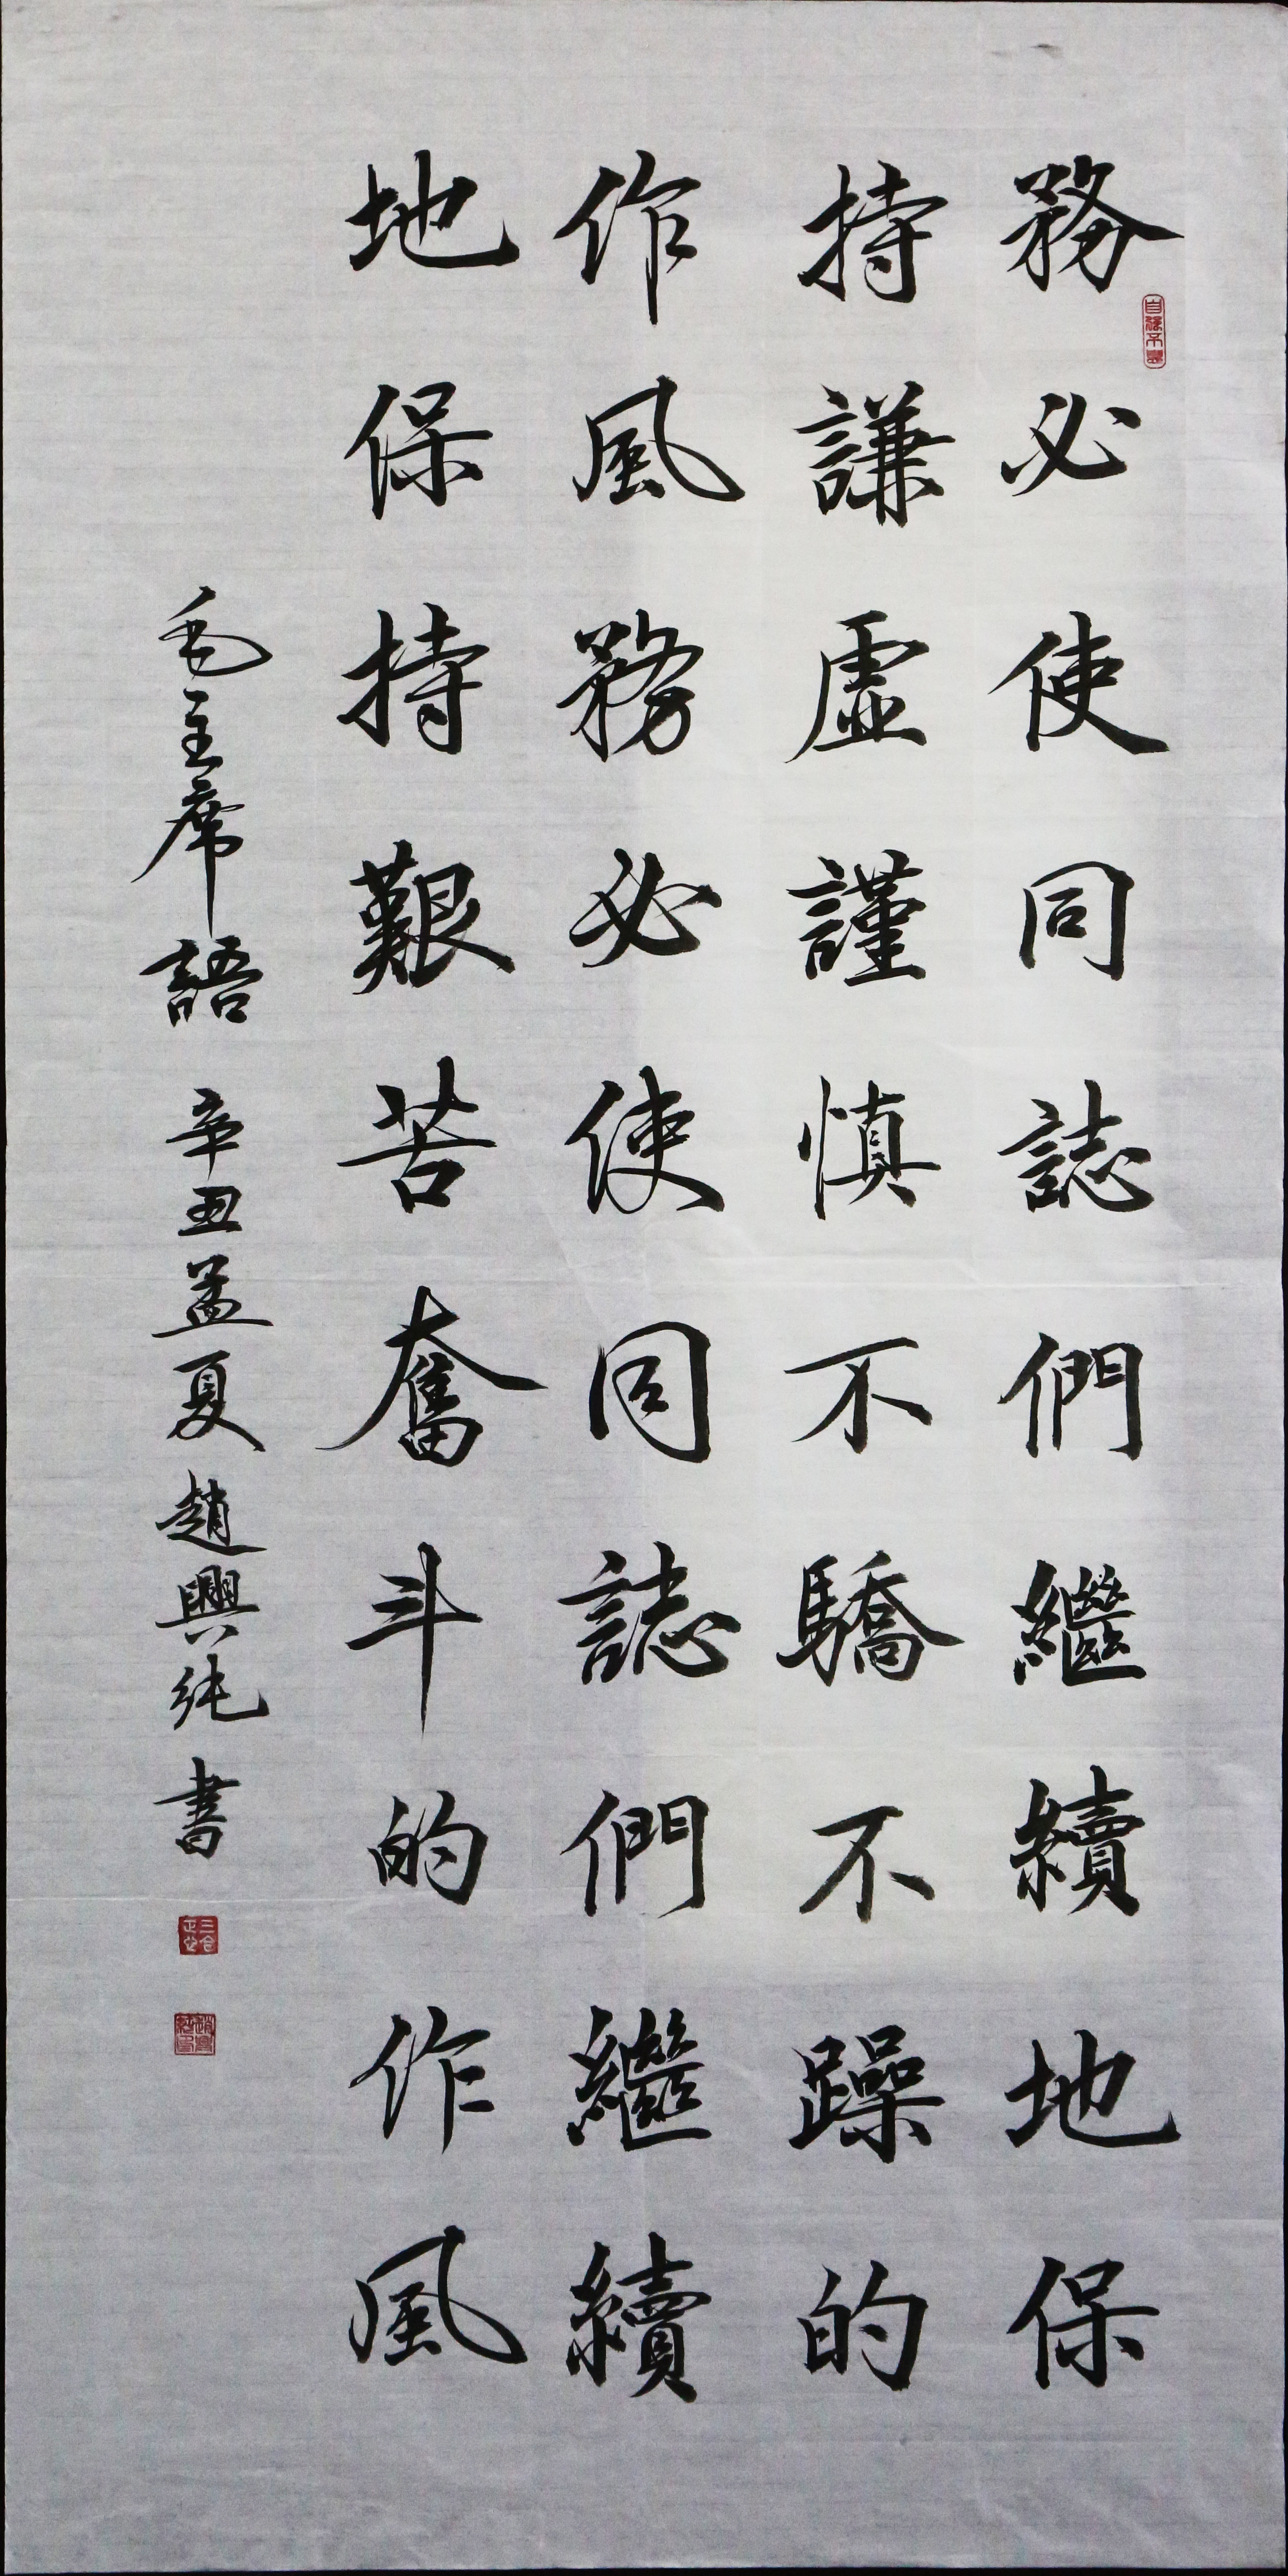 務必使同誌們繼續地保
持謙虛謹慎不驕不躁的
作風務必使同誌們繼續
地保持艱苦奮斗的作風
毛主席語 辛丑孟夏 趙興純書
自強不息